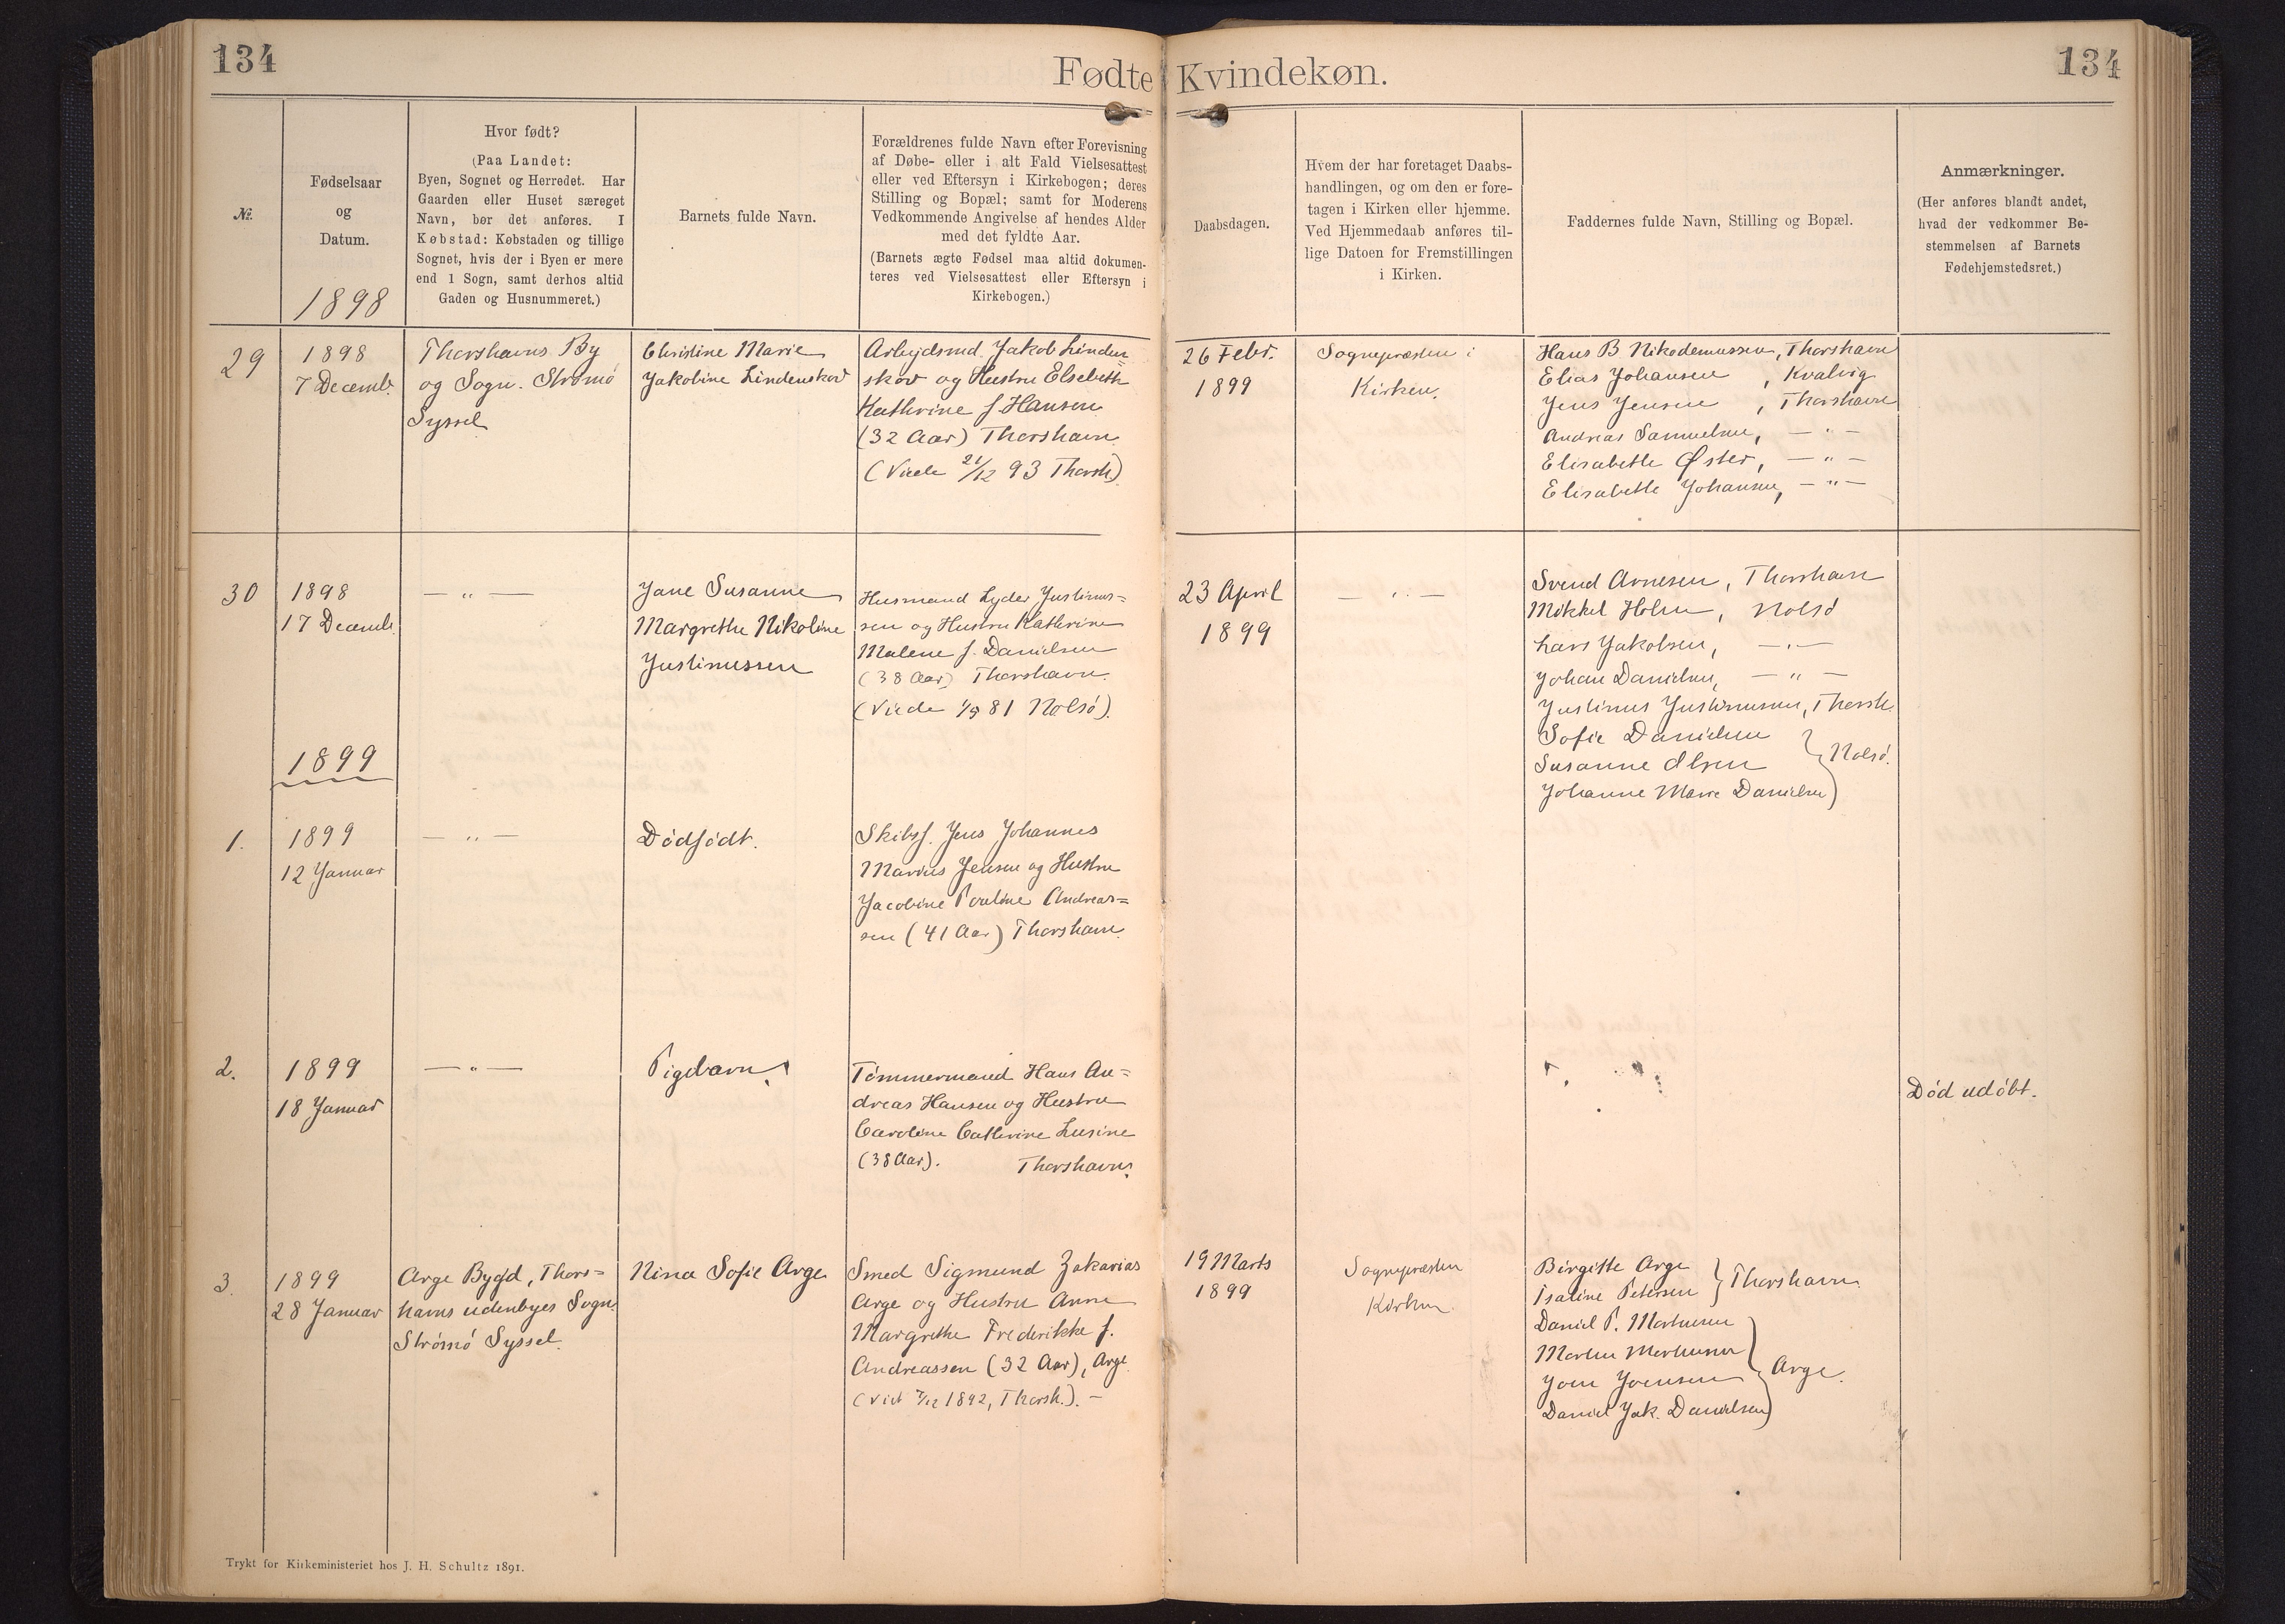 134
Fødte Kvindekøn.
134
№.
Fødselsaar
og
Datum.
1898
Hvor født?
(Paa Landet:
Byen, Sognet og Herredet. Har
Gaarden eller Huset særeget
Navn, bør det anføres. I
Købstad: Købstaden og tillige
Sognet, hvis der i Byen er mere
end 1 Sogn, samt derhos altid
Gaden og Husnummeret.)
Barnets fulde Navn.
Forældrenes fulde Navn efter Forevisning
af Døbe- eller i alt Fald Vielsesattest
eller ved Eftersyn i Kirkebogen; deres
Stilling og Bopæl; samt for Moderens
Vedkommende Angivelse af hendes Alder
med det fyldte Aar.
(Barnets ægte Fødsel maa altid dokumen-
teres ved Vielsesattest eller Eftersyn i
Kirkebogen.)
Daabsdagen.
Hvem der har foretaget Daabs-
handlingen, og om den er fore-
tagen i Kirken eller hjemme.
Ved Hjemmedaab anføres til-
lige Datoen for Fremstillingen
i Kirken.
Faddernes fulde Navn, Stilling og Bopæl.
Anmærkninger.
(Her anføres blandt andet,
hvad der vedkommer Be-
stemmelsen af Barnets
Fødehjemstedsret.)
29
1898
7 Decemb.
Thorshavns By
og Sogn. Strømø
Syssel
Christine Marie
Jakobine Lindenskov
Arbejdsmd. Jakob Linden
skov og Hustru Elsebeth
Kathrine f. Hansen
(32 Aar) Thorshavn
(Viede 21/12 93 Thorsh)
26 Febr.
1899
Sognepræsten i
Kirken.
Hans B Nikodemussen, Thorshavn
Elias Johansen , Kvalvig
Jens Jensen , Thorshavn
Andreas Samuelsen, — " —
Elisabeth Øster, — " —
Elisabeth Johansen, — " —
30
1898
17 Decemb.
— " —
Jane Susanne
Margrethe Nikoline
Justinussen
Husmand Lyder Justinus=
sen og Hustru Kathrine
Malene f. Danielsen
(38 Aar) Thorshavn.
(Viede 1/9 81 Nolsø).
23 April
1899
— " —
Svend Arnesen, Thorshavn
Mikkel Holm, Nolsø
Lars Jakobsen, — " —
Johan Danielsen, — " —
Justinus Justinussen, Thorsh.
Sofie Danielsen
Susanne Olsen } Nolsø.
Johanne Marie Danielsen
1899
1.
1899
12 Januar
— " —
Dødfødt.
Skibsf. Jens Johannes
Marius Jensen og Hustru
Jacobine Pouline Andreas=
sen (41 Aar) Thorshavn.
2.
1899
18 Januar
— " —
Pigebarn.
Tømmermand Hans An=
dreas Hansen og Hustru
Caroline Cathrine Lusine
(38 Aar). Thorshavn.
Død udøbt.
3.
1899
28 Januar
Arge Bygd, Thors=
havns udenbyes Sogn.
Strømø Syssel.
Nina Sofie Arge
Smed Sigmund Zakarias
Arge og Hustru Anne
Margrethe Frederikke f.
Andreassen (32 Aar), Arge.
(Viet 7/12 1892, Thorsh.). —
19 Marts
1899
Sognepræsten
Kirken.
Birgitte Arge
Isaline Petersen } Thorshavn.
Daniel P. Mortensen
Morten Mortensen
Joen Joensen } Arge.
Daniel Jak. Danielsen
Trykt for Kirkeministeriet hos J. H. Schultz 1891.